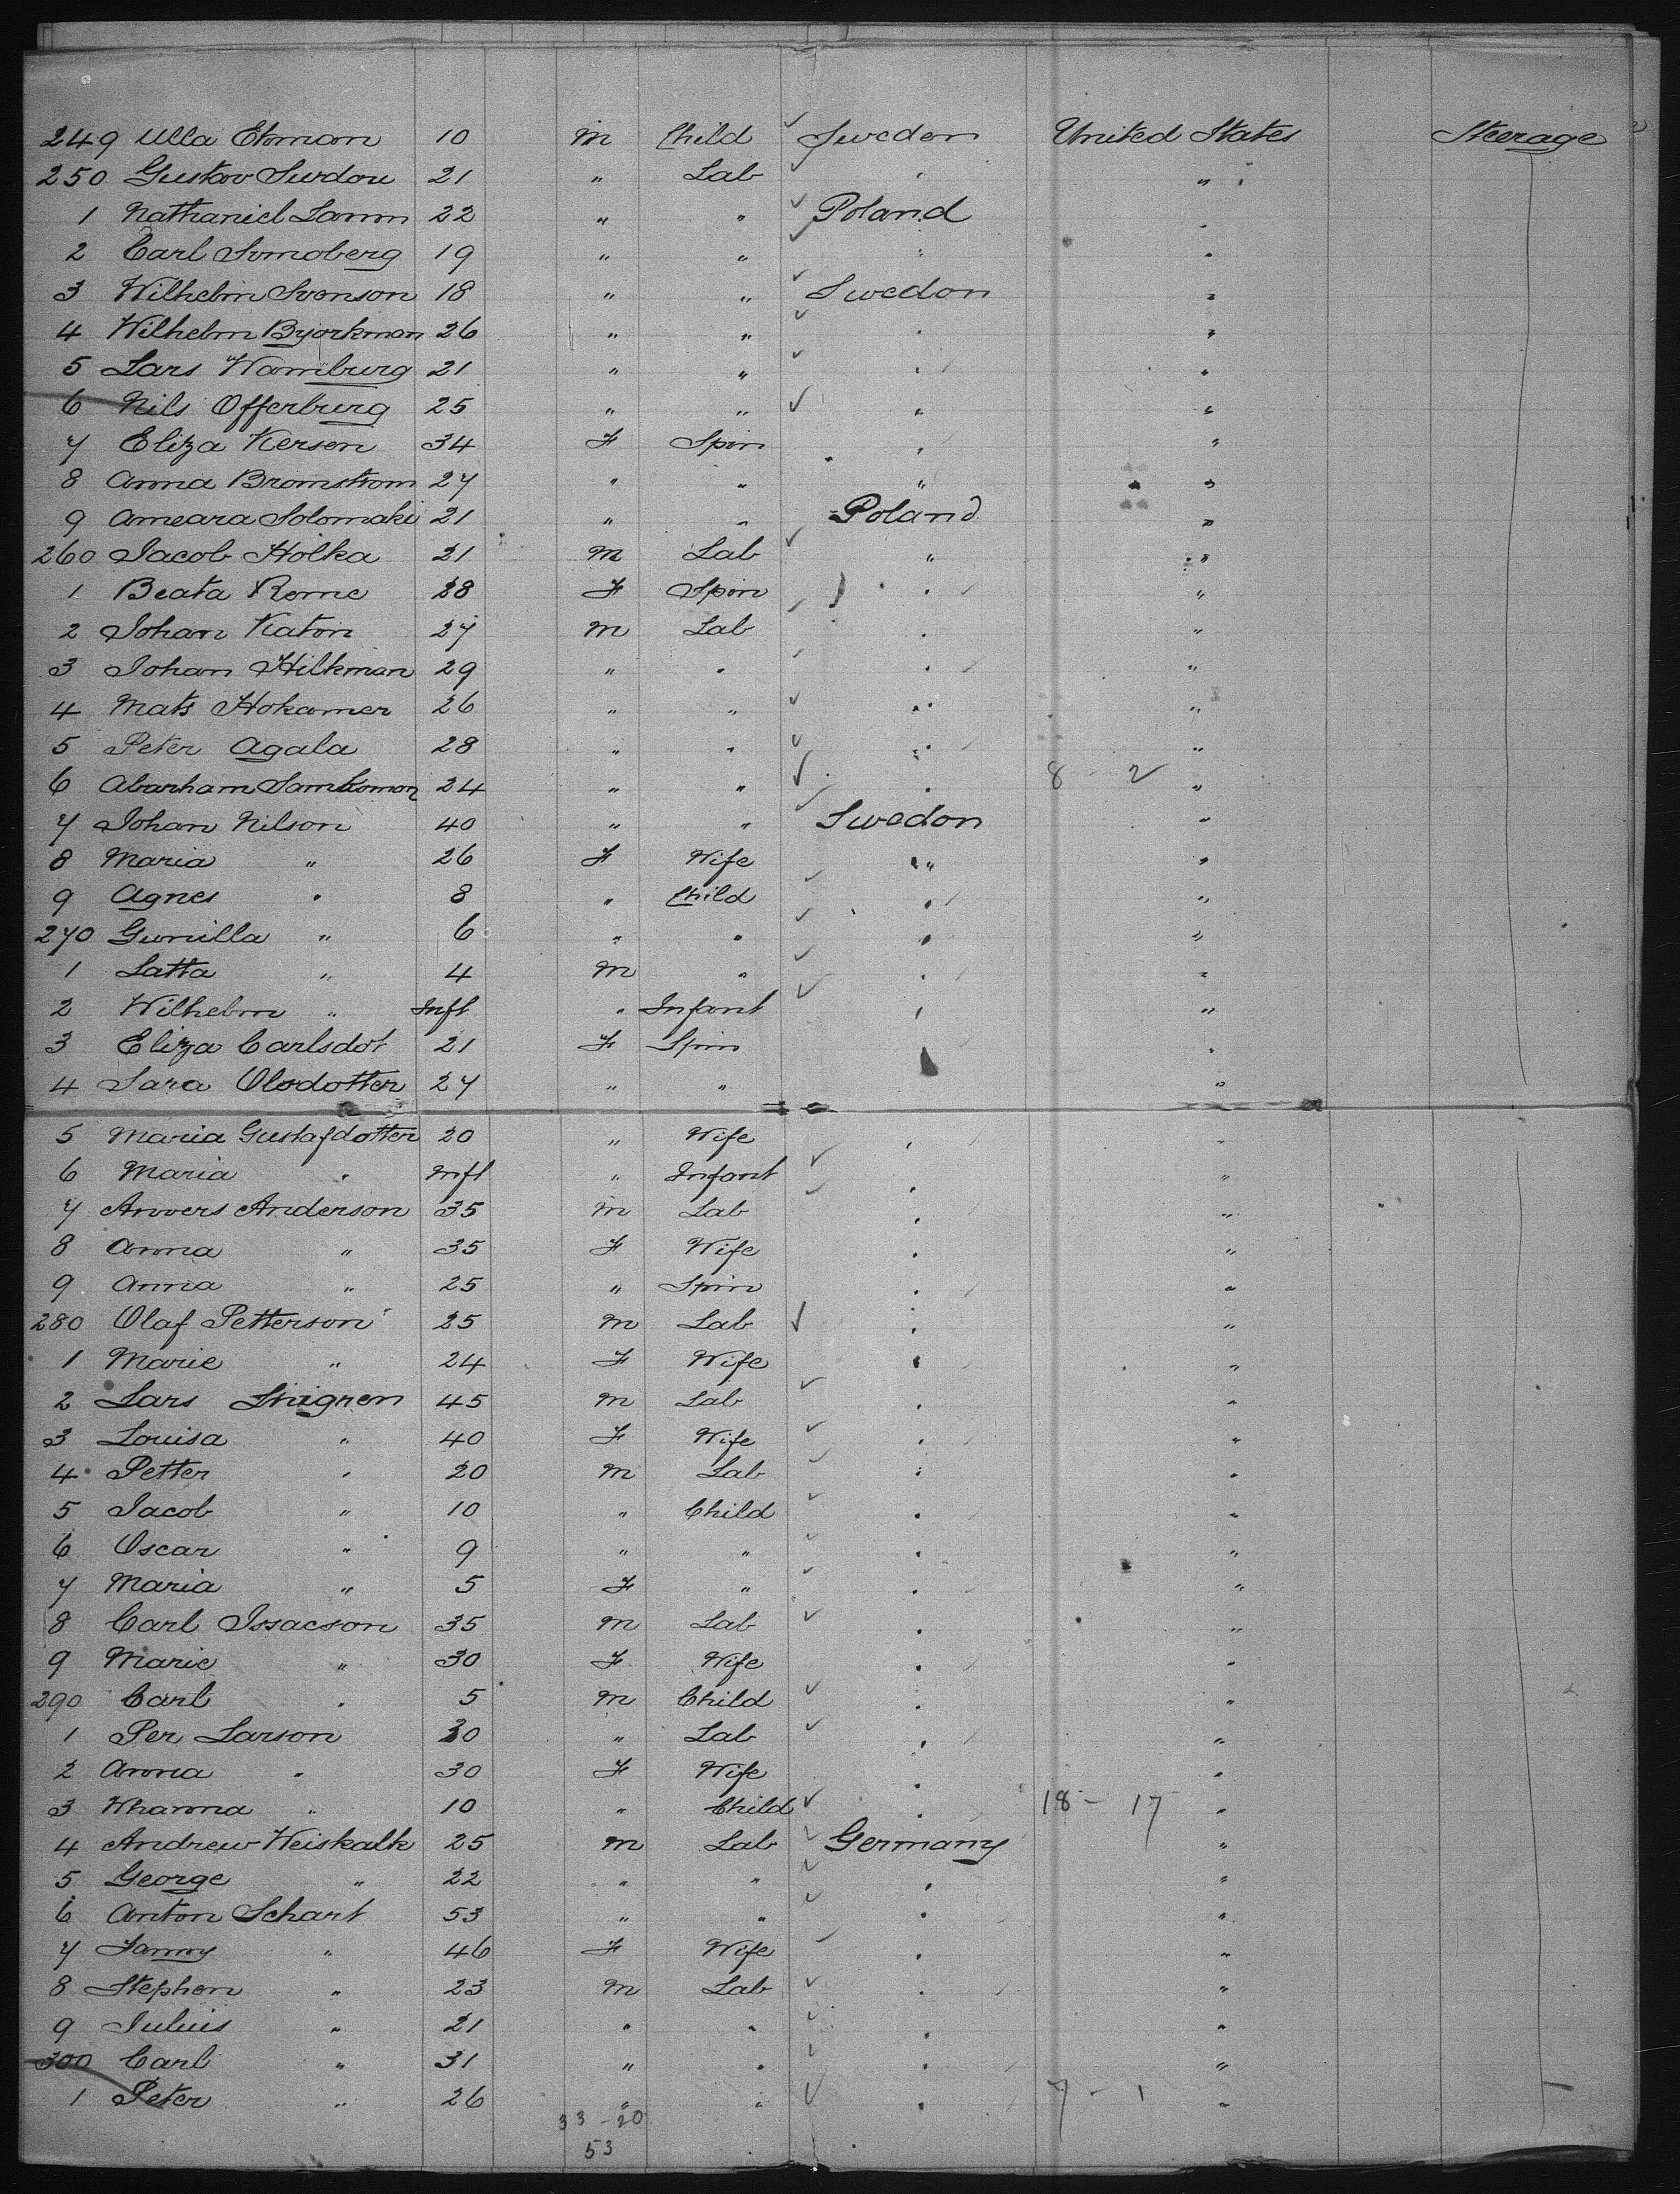 249 Ulla Ekman 10 M Child Sweden United States Steerage
250 Gustav Surdou 21 " Lab " " "
1 Nathaniel Lamm 22 " " Poland "
2 Carl Svmoberg 19 " " " "
3 Wilhelm Svenson 18 " " Sweden "
4 Wilhelm Byorkman 26 " " " "
5 Lars Wamburg 21 " " " "
6 Nils Offerburg 25 " " " "
7 Eliza Kerson 34 F Spin " "
8 Anna Bromstrom 27 " " " "
9 Ameara Solomaki 21 " " Poland "
260 Jacob Holka 21 M Lab " "
1 Beata Rome 28 F Spin " "
2 Johan Katon 27 M Lab " "
3 Johan Hilkman 29 " " " "
4 Mats Hokamer 26 " " " "
5 Peter Agala 28 " " " "
6 Abarham Sambomon 24 " " " 8 - 2 "
7 Johan Nilson 40 " " Sweden "
8 Maria " 26 F Wife " "
9 Agnes " 8 " Child " "
270 Gunilla " 6 " " " "
1 Latta " 4 M " " "
2 Wilhelm " Inft " Infant " "
3 Eliza Carlsdot 21 F Spin " "
4 Sara Olsdotter 27 " " "
5 Maria Gustafdotter 20 " Wife " "
6 Maria " Inft " Infant "
7 Anvers Anderson 35 M Lab " "
8 Anna " 35 F Wife " "
9 Anna " 25 " Spin " "
280 Olaf Petterson 25 M Lab " "
1 Marie " 24 F Wife " "
2 Lars Linigren 45 M Lab " "
3 Louisa " 40 F Wife " "
4 Petter " 20 M Lab " "
5 Jacob " 10 " Child " "
6 Oscar " 9 " " " "
7 Maria " 5 F " " "
8 Carl Issacson 35 M Lab " "
9 Marie " 30 F Wife " "
290 Carl " 5 M Child " "
1 Per Larson 30 " Lab " "
2 Anna " 30 F Wife " "
3 Whanna " 10 " Child " 18 - 17 "
4 Andrew Weiskalk 25 M Lab Germany "
5 George " 22 " " " "
6 Anton Schart 53 " " " "
7 Fanny " 46 F Wife " "
8 Stephen " 23 M Lab " "
9 Julius " 21 " " " "
300 Carl " 31 " " " "
1 Peter " 26 " " " 7 - 1 "
33 - 20
53